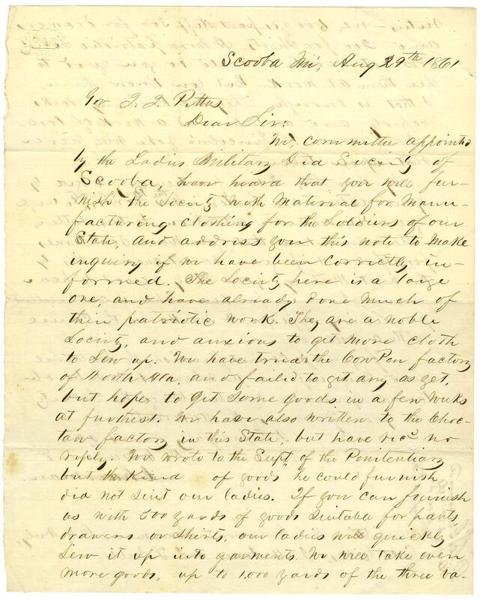 Scooba Mi, Aug 29th 1861
Gov J. J. Pettus
Dear Sir:
We, committee appointed
by the Ladies Military Aid Society of
Scooba, have heard that you will fur-
nish the Society with Material for Manu-
facturing Clothing for the Soldiers of our
State, and address you this note to make
inquiry if we have been correctly in-
formed. The Society here is a large
one, and have already done much of
their patriotic work. They are a noble
Society, and anxious to get more cloth
to sew up. We have tried the Cow Pen factory
of North Ala. and failed to get any as yet,
but hope to get some goods in a few weeks
at furthest. We have also written to the Choc-
taw factory in this State, but have recd no
reply. We wrote to the Supt of the Penitentiary
but the kind of goods he could furnish
did not suit our ladies. If you can furnish
us with 500 yards of goods suitable for pants,
drawers or shirts, our ladies will quickly
sew it up into garments. We will take even
more goods, up to 1,000 yards of the three va-